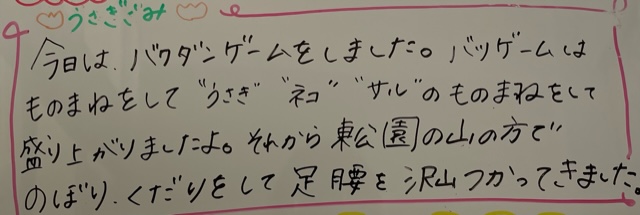 うさぎぐみ
今日は、バクダンゲームをしました。バツゲームは
ものまねをして"うさぎ""ネコ""サル"のものまねをして
盛り上がりましたよ。それから東公園の山の方で
のぼり、くだりをして足腰を沢山つかってきました。